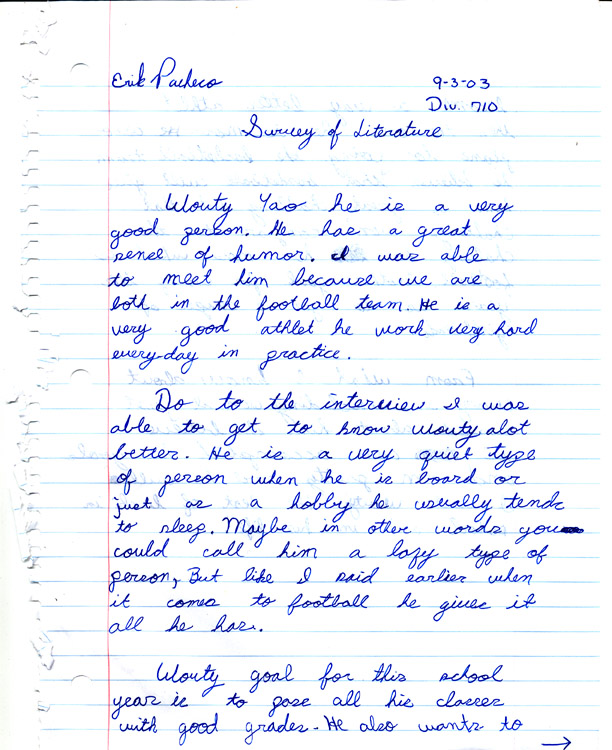 Erik Pacheco 9-3-03
Div. 710
Survey of Literature
Wouty Yao he is a very
good person. He has a great
sense of humor. I was able
to meet him because we are
both in the football team. He is a
very good athlet he work very hard
every-day in practice.
Do to the interview I was
able to get to know wouty alot
better. He is a very quiet type
of person when he is board or
just as a hobby he usually tends
to sleep. Maybe in other words you
could call him a lazy type of
person, But like I said earlier when
it comes to football he gives it
all he has.
Wouty goal for this school
year is to pase all his classes
with good grades. He also wants to
→